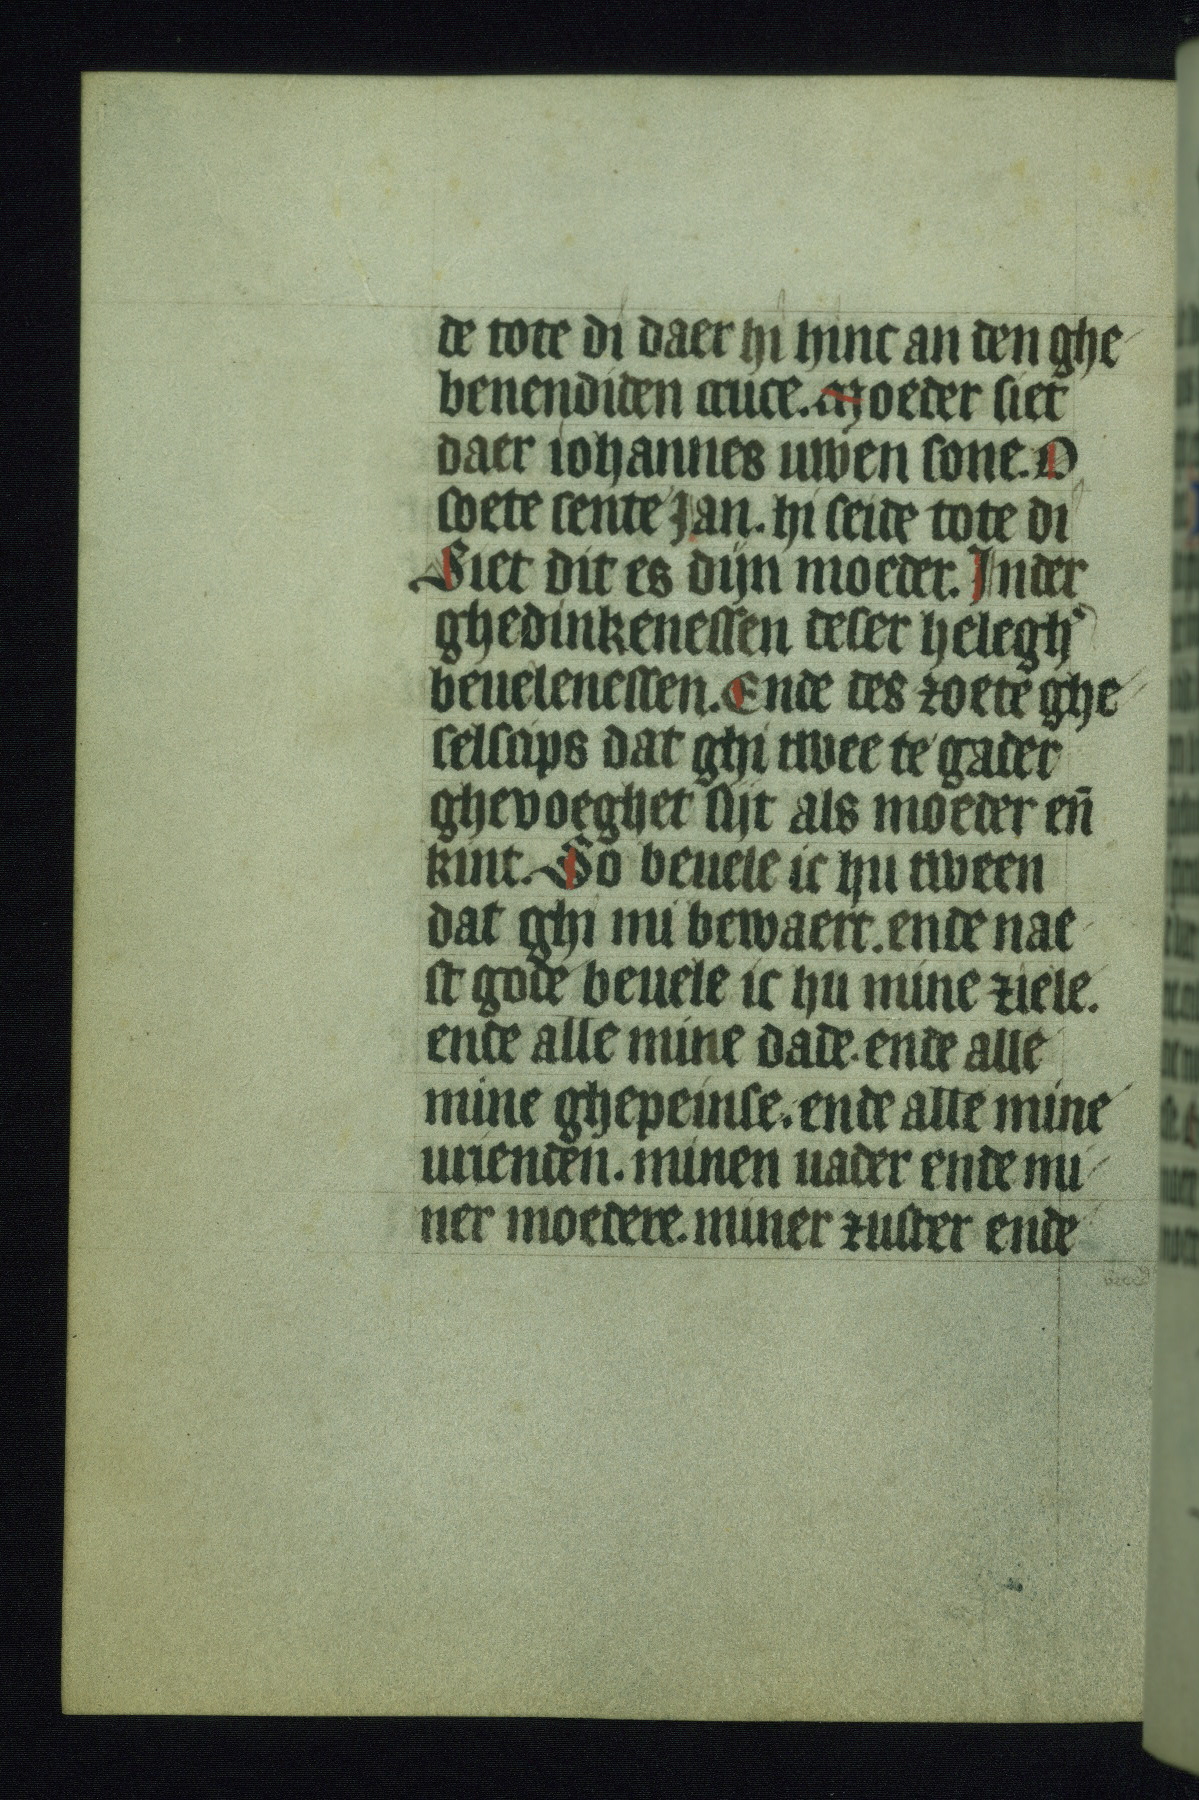 de tote di daer hi hinc an den ghe
benendiden cruce. Moeder siet
daer iohannes uwen sone. O
soete sente Jan. hi seide tote di
Siet dit es dijn moeder. Inder
ghedinkenessen deser helegh'
beuelenessen. Ende des zoete ghe
selscips dat ghi twee te gader
ghevoeghet sijt als moeder en̄
kint. So beuele ic hu tween
dat ghi mi bewaert. ende nae
st gode beuele ic hu mine ziele.
ende alle mine dade. ende alle
mine ghepeinse. ende alle mine
urienden. minen uader ende mi
ner moedere. miner zuster ende